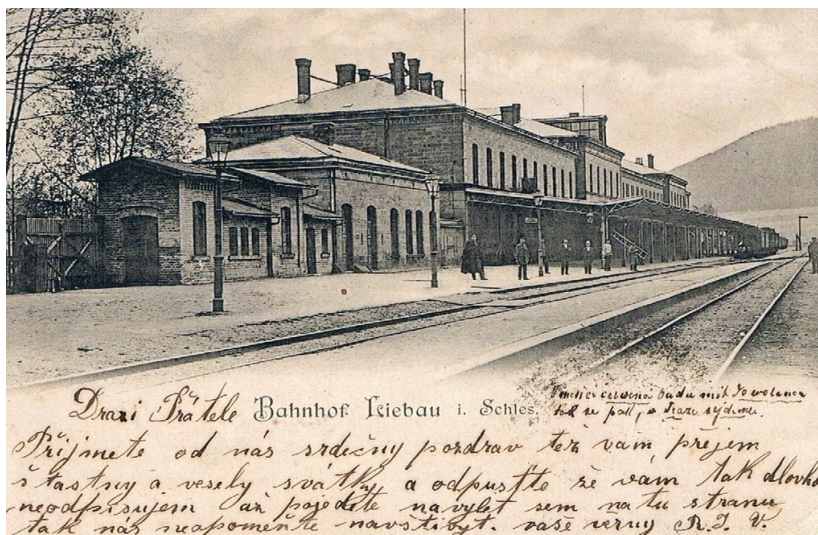 Drazi Přatele Bahnhof Liebau i. Schles.
červena budu mit Dowolenou
tak se pak, w Praze sejdeme.
Přijmete od nás srdečny pozdrav též vam přejem
štastny a vesely svátky, a odpustte že vám tak dlouho
neodpisujem až pojedete na vylet sem na tu stranu
tak nás neapomente navštivyt. vaše věrny R. J. V.